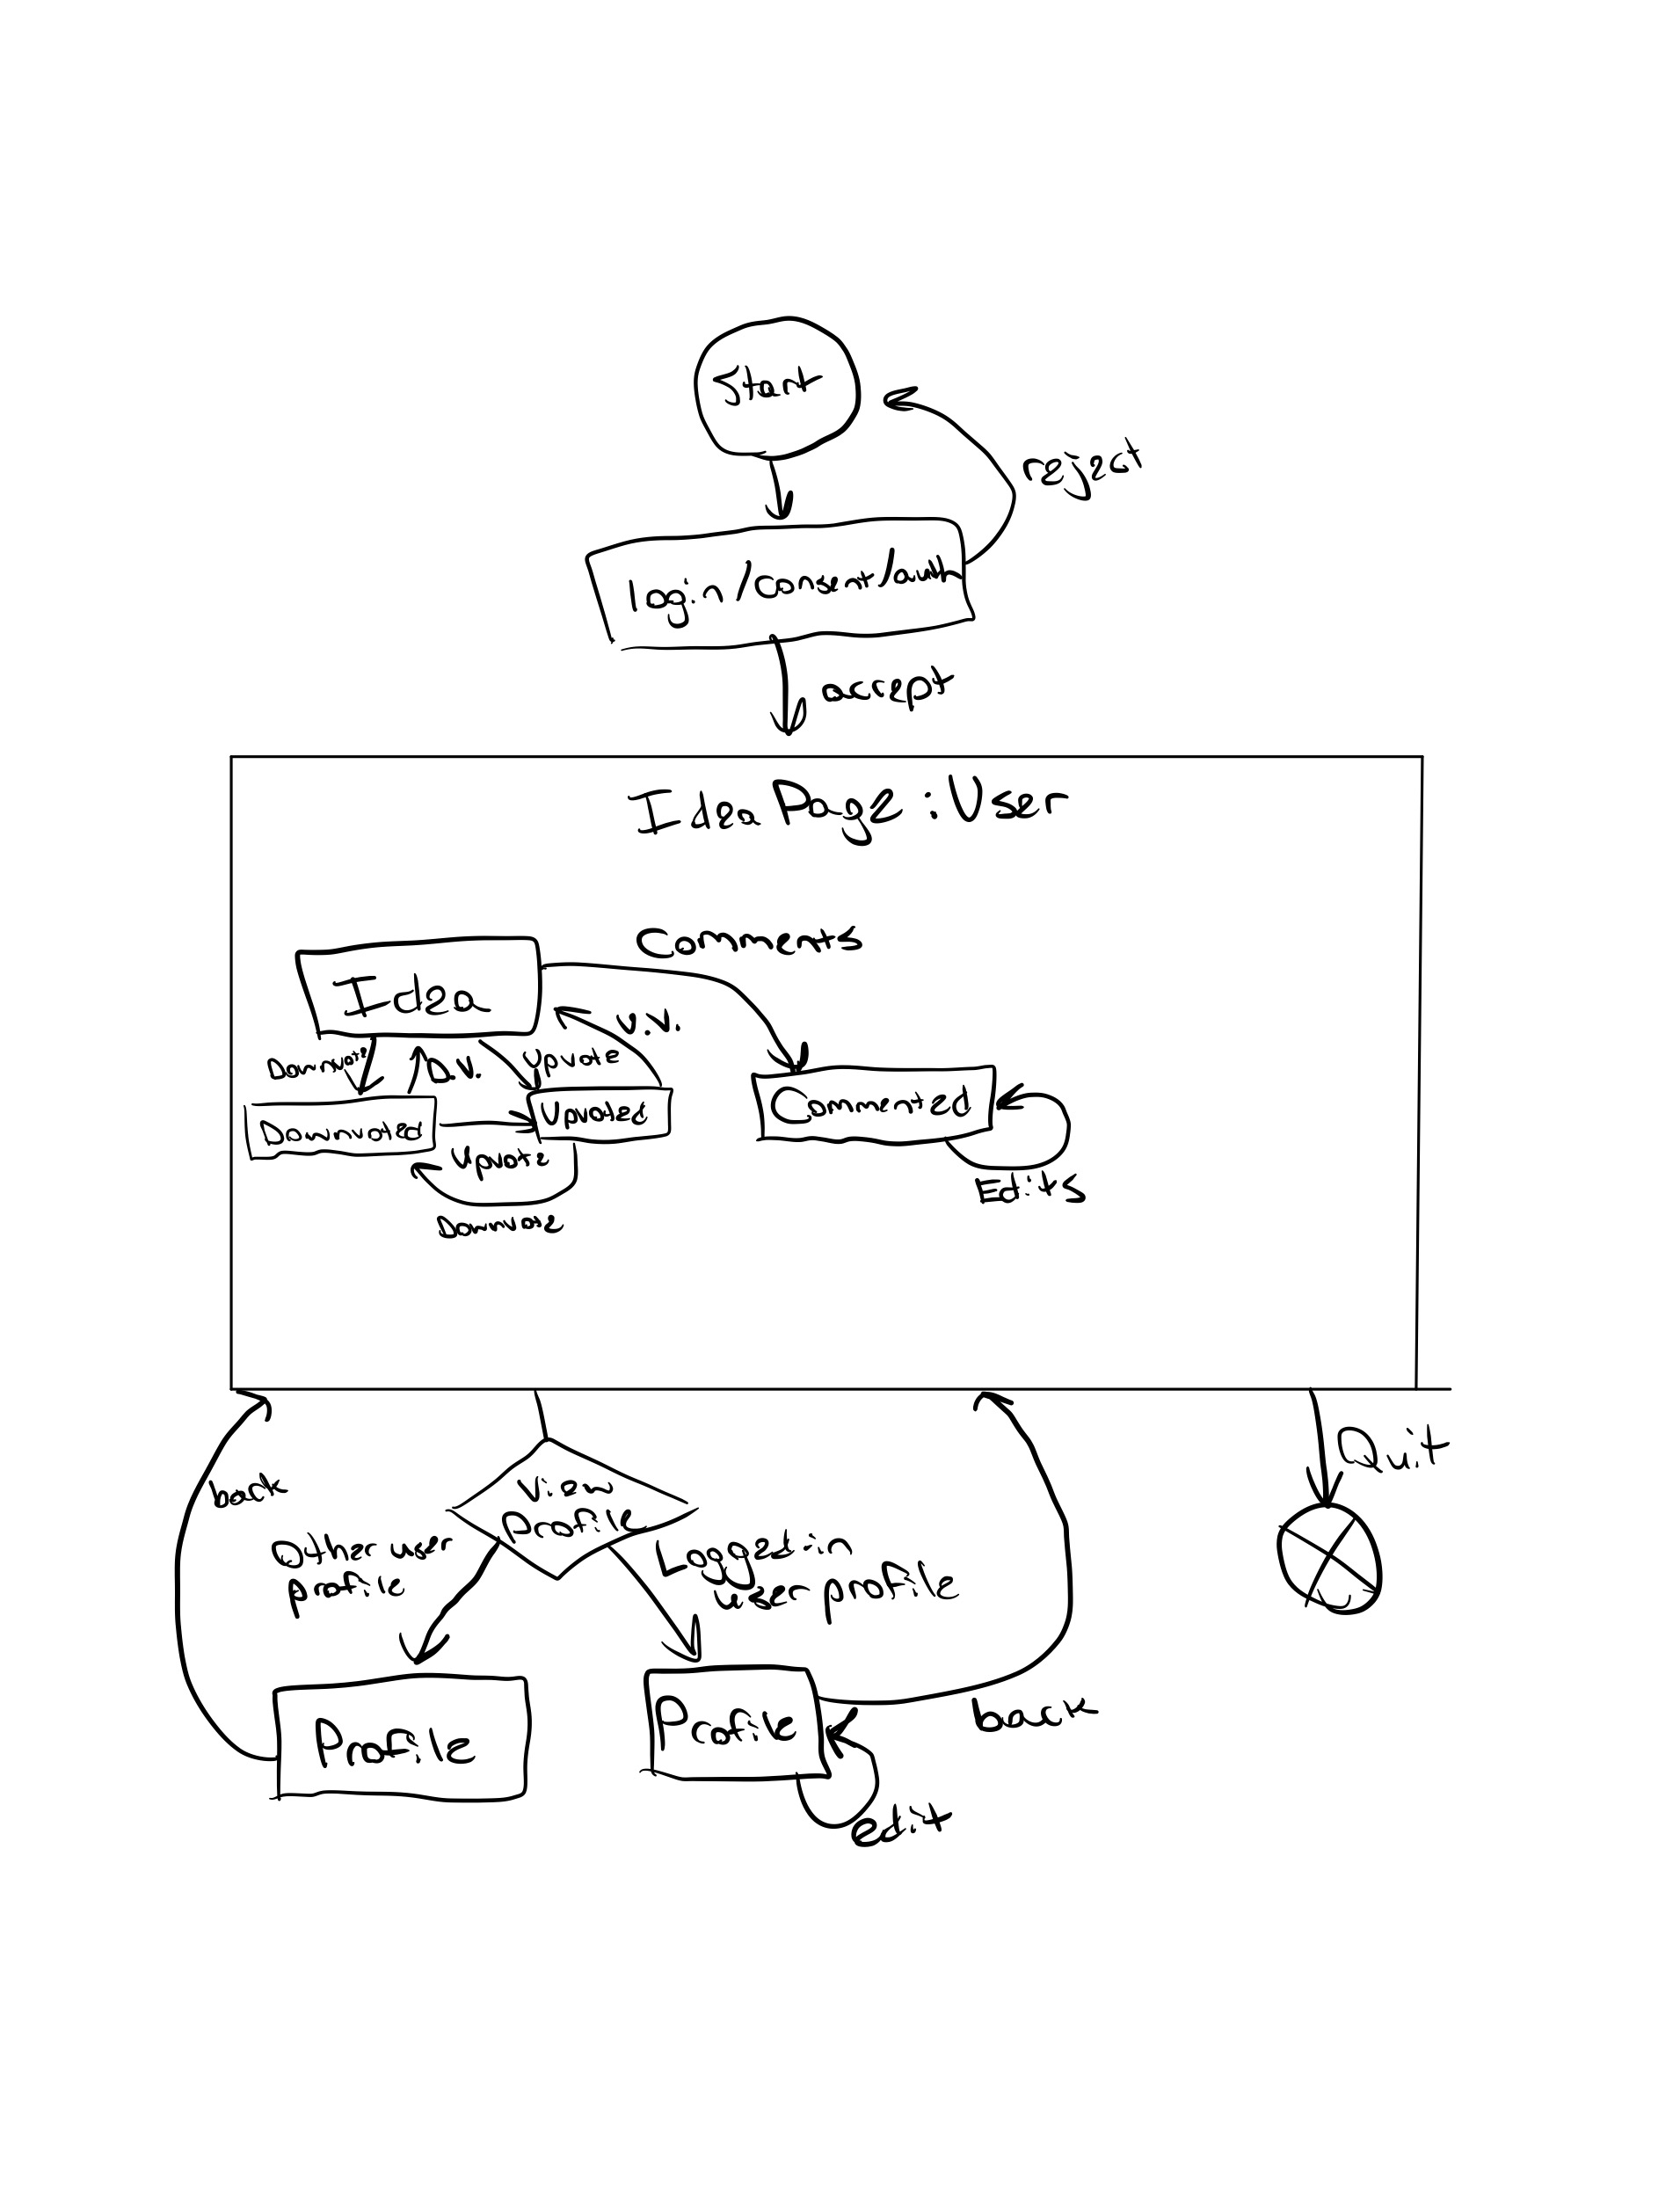 Start
reject
login/consent/auth
accept
Idea Page : User
Comments
Idea
U.V.
Downvote
D.V.
Upvote
Downvoted
Upvoted
Commented
Upvote
Edits
Downvote
Quit
back
View
Profile
Other user
profile
Logged-in
user profile
Profile
Profile
back
edit